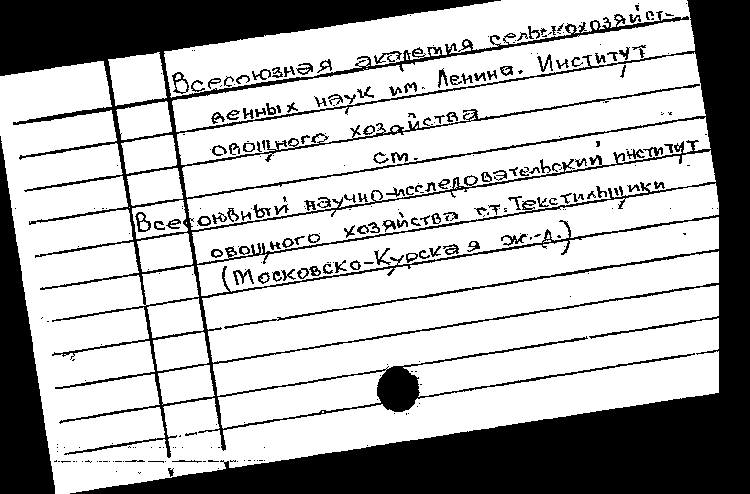 Всесоюзная академия сельскохозяйст-
венных наук им. Ленина. Институт
овощного хозяйства
см.
Всесоюзный научно-исследовательский институт
овощного хозяйства ст. Текстильщики
(Московско-Курская ж.-д.)